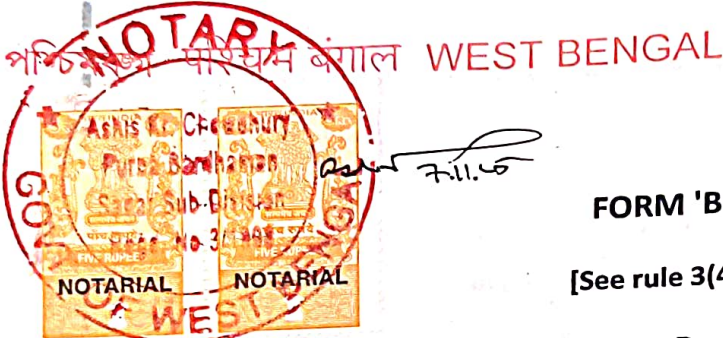 পশ্চিমবঙ্গ पश्चिम बंगाल WEST BENGAL
NOTARY
Ashis Kr. Chowdhury
Purba Bardhaman
Sadar Sub-Division
No
GOVT. OF WEST BENGAL
INDIA
पाँच रुपये
FIVE RUPEES
NOTARIAL
NOTARIAL
7.11.
FORM 'B
[See rule 3(4